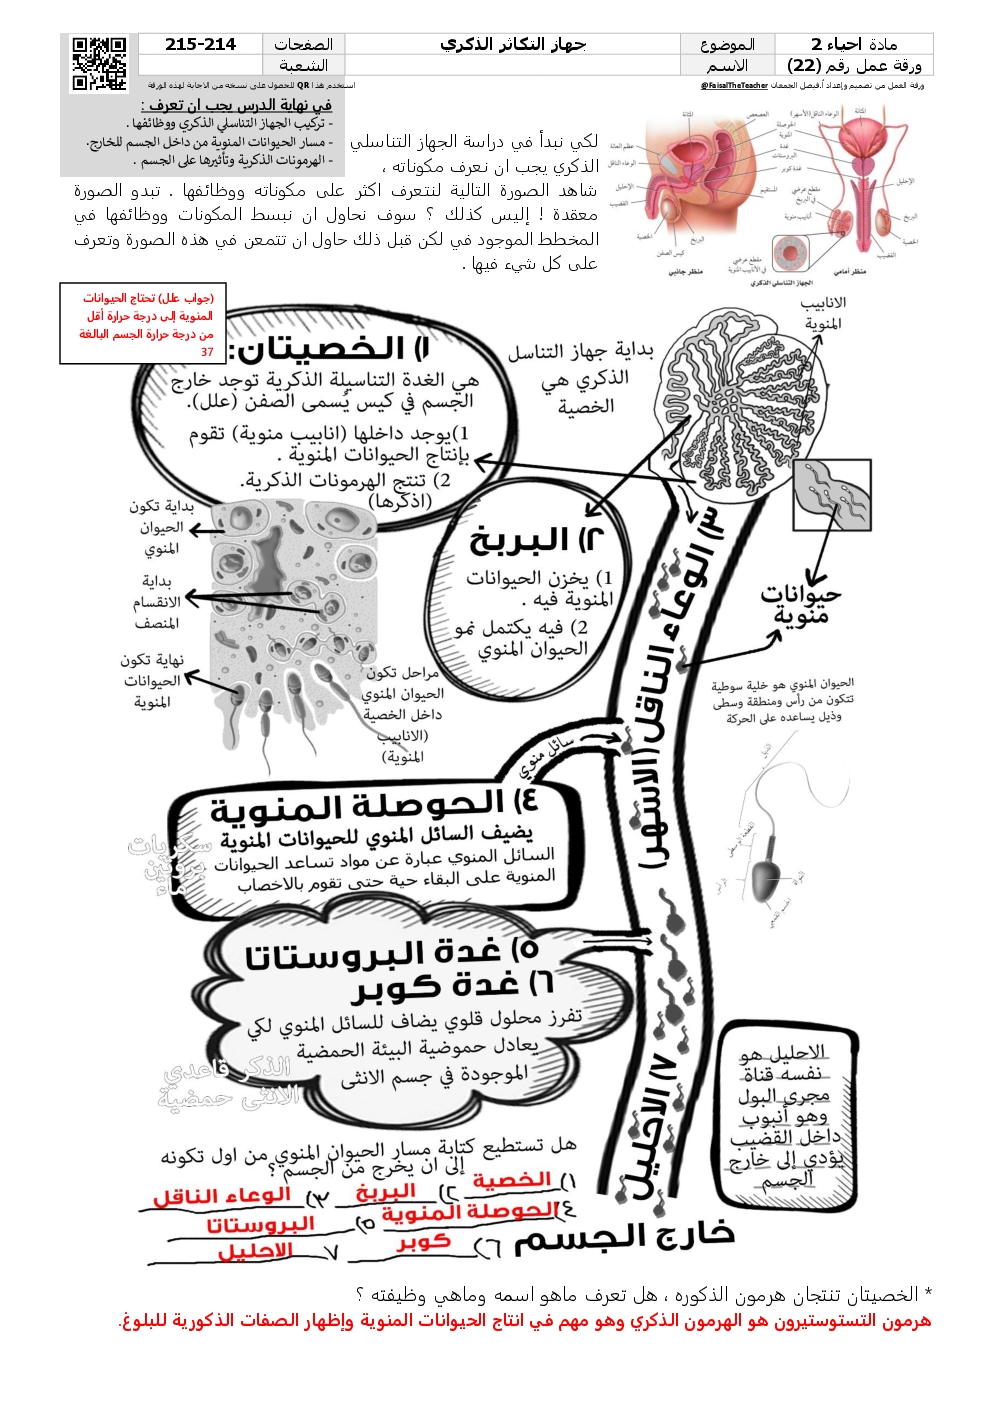 مادة احياء 2
الموضوع
جهاز التكاثر الذكري
الصفحات
215-214
ورقة عمل رقم (22)
الاسم
الشعبة
ورقة العمل من تصميم وإعداد أ.فيصل الجمعان FaisalTheTeacher@
استخدم هذا QR للحصول على نسخه من الاجابة لهذه الورقة
في نهاية الدرس يجب ان تعرف :
- تركيب الجهاز التناسلي الذكري ووظائفها .
- مسار الحيوانات المنوية من داخل الجسم للخارج.
- الهرمونات الذكرية وتأثيرها على الجسم .
لكي نبدأ في دراسة الجهاز التناسلي
الذكري يجب ان نعرف مكوناته ،
شاهد الصورة التالية لنتعرف اكثر على مكوناته ووظائفها . تبدو الصورة
معقدة ! إليس كذلك ؟ سوف نحاول ان نبسط المكونات ووظائفها في
المخطط الموجود في لكن قبل ذلك حاول ان تتمعن في هذه الصورة وتعرف
على كل شيء فيها .
المثانة
العصعص
الحوصلة المنوية
غدة البروستات
غدة كوبر
عظم العانة
الوعاء الناقل
الإحليل
القضيب
المستقيم
البربخ
الخصية
كيس الصفن
منظر جانبي
الوعاء الناقل(الأسهر)
المثانة
الإحليل
مقطع عرضي في البربخ
أنابيب منوية
البربخ
الخصية
القضيب
مقطع عرضي في الأنابيب المنوية
منظر أمامي
الجهاز التناسلي الذكري
(جواب علل) تحتاج الحيوانات
المنوية إلى درجة حرارة أقل
من درجة حرارة الجسم البالغة
37
١) الخصيتان:
هي الغدة التناسيلة الذكرية توجد خارج
الجسم في كيس يُسمى الصفن (علل).
1)يوجد داخلها (انابيب منوية) تقوم
بإنتاج الحيوانات المنوية .
2) تنتج الهرمونات الذكرية.
(اذكرها)
بداية جهاز التناسل
الذكري هي
الخصية
الانابيب
المنوية
٢) البربخ
1) يخزن الحيوانات
المنوية فيه .
2) فيه يكتمل نمو
الحيوان المنوي
٣) الوعاء الناقل(الاسهر)
حيوانات
منوية
الحيوان المنوي هو خلية سوطية
تتكون من رأس ومنطقة وسطى
وذيل يساعده على الحركة
الذيل
القطعة الوسطى
الرأس
النواة
الجسم القمي
بداية تكون
الحيوان
المنوي
بداية
الانقسام
المنصف
نهاية تكون
الحيوانات
المنوية
مراحل تكون
الحيوان المنوي
داخل الخصية
(الانابيب
المنوية)
سائل منوي
٤) الحوصلة المنوية
يضيف السائل المنوي للحيوانات المنوية
السائل المنوي عبارة عن مواد تساعد الحيوانات
المنوية على البقاء حية حتى تقوم بالاخصاب
سكريات
بروتين
ماء
٥) غدة البروستاتا
٦) غدة كوبر
تفرز محلول قلوي يضاف للسائل المنوي لكي
يعادل حموضية البيئة الحمضية
الموجودة في جسم الانثى
الذكر قاعدي
الانثى حمضية
٧) الاحليل
الاحليل هو
نفسه قناة
مجرى البول
وهو أنبوب
داخل القضيب
يؤدي إلى خارج
الجسم
هل تستطيع كتابة مسار الحيوان المنوي من اول تكونه
إلى ان يخرج من الجسم ؟
١) الخصية ٢) البربخ ٣) الوعاء الناقل
٤) الحوصلة المنوية ٥) البروستاتا
٦) كوبر ٧ الاحليل
خارج الجسم
* الخصيتان تنتجان هرمون الذكوره ، هل تعرف ماهو اسمه وماهي وظيفته ؟
هرمون التستوستيرون هو الهرمون الذكري وهو مهم في انتاج الحيوانات المنوية وإظهار الصفات الذكورية للبلوغ.